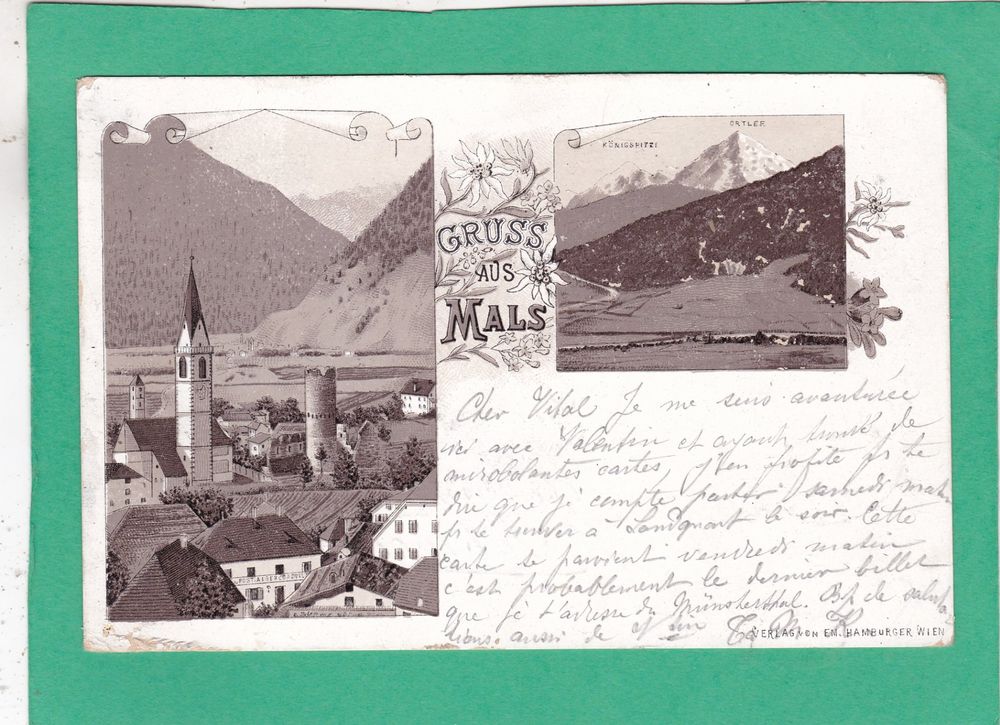 ORTLER
KÖNIGSPITZE
GRUSS
AUS
MALS
Cher Vital Je me suis aventurée
ici avec Valentin et ayant trouvé de
mirobolantes cartes, j'en profite pr te
dire que je compte partir samedi matin
pr te trouver à Landquart le soir. Cette
carte te parvient vendredi matin
c'est probablement le dernier billet
que je t'adresse du Münsterthal. de saluta
tions aussi de
VERLAG VON EM. HAMBURGER WIEN